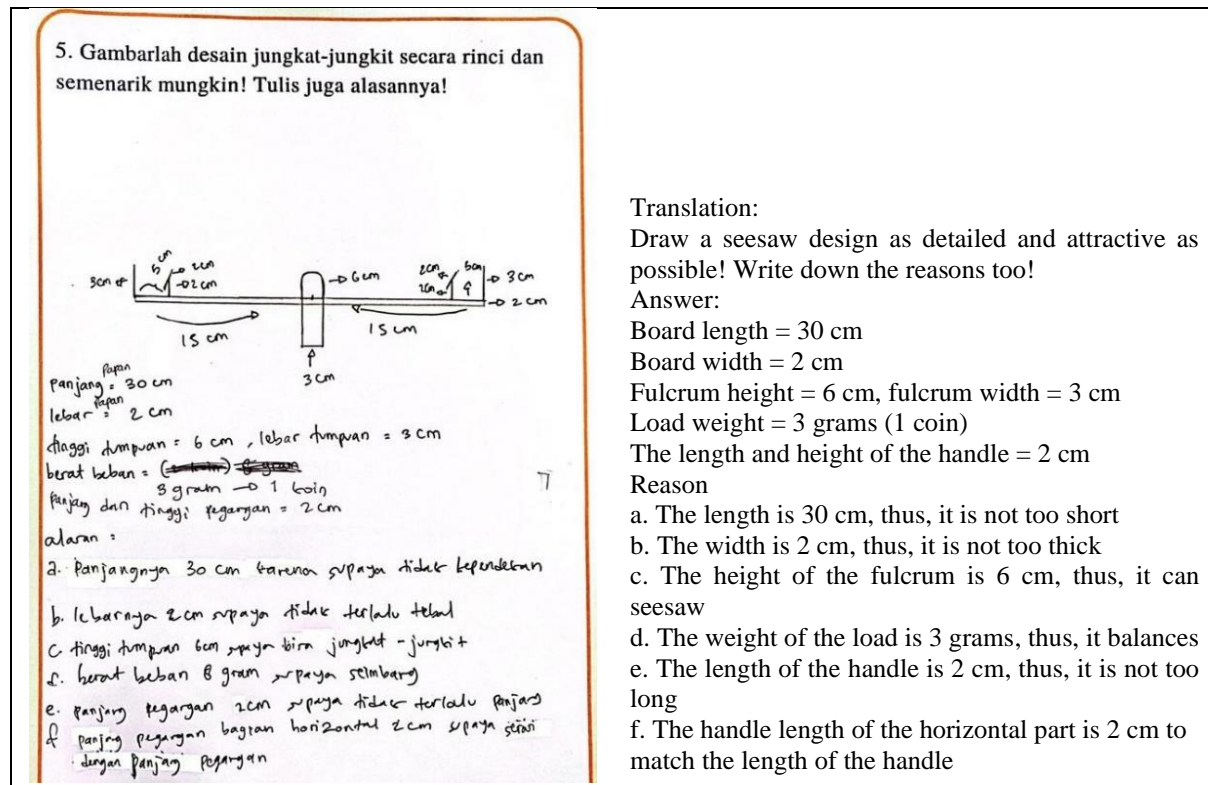 5. Gambarlah desain jungkat-jungkit secara rinci dan
semenarik mungkin! Tulis juga alasannya!
3cm
5 cm
2cm
2cm
6 cm
2cm
2cm
5cm
3 cm
2 cm
15 cm
15 cm
3 cm
panjang papan = 30 cm
lebar papan = 2 cm
tinggi tumpuan = 6 cm, lebar tumpuan = 3 cm
berat beban =
3 gram → 1 koin
panjang dan tinggi pegangan = 2 cm
alasan =
a. Panjangnya 30 cm karena supaya tidak kependekan
b. lebarnya 2 cm supaya tidak terlalu tebal
c tinggi tumpuan 6cm supaya bisa jungkat - jungkit
berat beban gram supaya seimbang
e. panjang pegangan 2cm supaya tidak terlalu panjang
f panjang pegangan bagian horizontal 2 cm supaya serasi
dengan panjang pegangan
Translation:
Draw a seesaw design as detailed and attractive as
possible! Write down the reasons too!
Answer:
Board length = 30 cm
Board width = 2 cm
Fulcrum height = 6 cm, fulcrum width = 3 cm
Load weight = 3 grams (1 coin)
The length and height of the handle = 2 cm
Reason
a. The length is 30 cm, thus, it is not too short
b. The width is 2 cm, thus, it is not too thick
c. The height of the fulcrum is 6 cm, thus, it can
seesaw
d. The weight of the load is 3 grams, thus, it balances
e. The length of the handle is 2 cm, thus, it is not too
long
f. The handle length of the horizontal part is 2 cm to
match the length of the handle